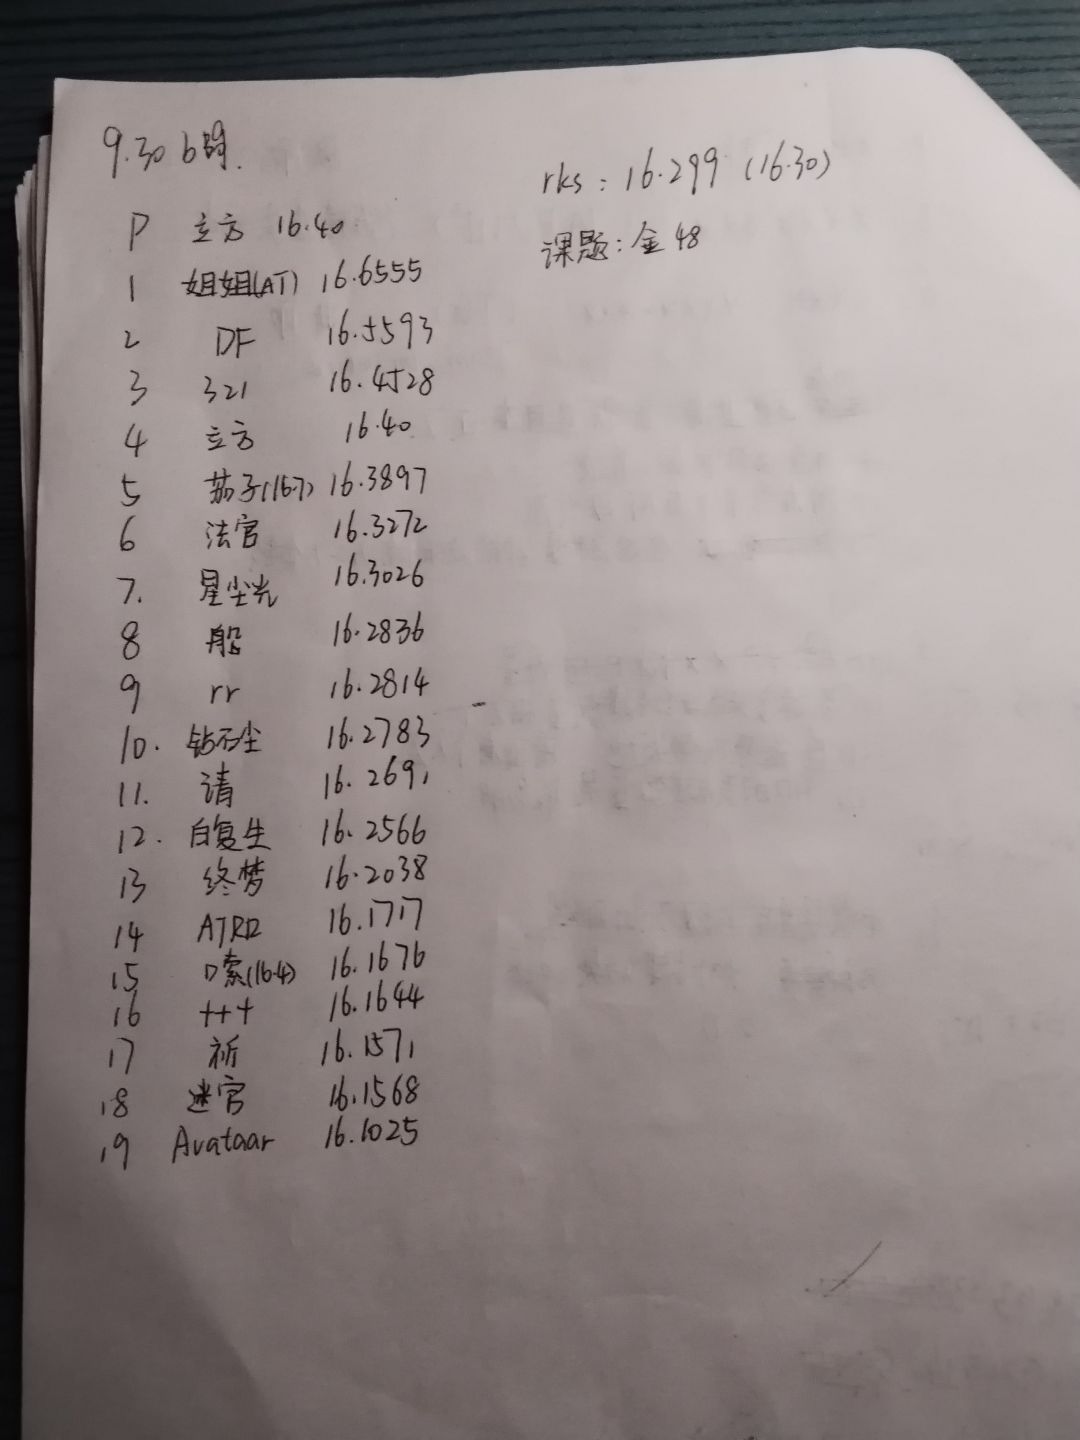 9.30 6时.
rks: 16.299 (16.30)
课题:金48
P 立方 16.40
1 姐姐(AT) 16.6555
2 DF 16.5593
3 321 16.4528
4 立方 16.40
5 茄子(16.7) 16.3897
6 法官 16.3272
7. 星尘光 16.3026
8 船 16.2836
9 rr 16.2814
10. 钻石尘 16.2783
11. 请 16.2691
12. 白复生 16.2566
13 终梦 16.2038
14 ATRD 16.1717
15 D索(16.4) 16.1676
16 +++ 16.1644
17 祈 16.1571
18 迷宫 16.1568
19 Avataar 16.1025